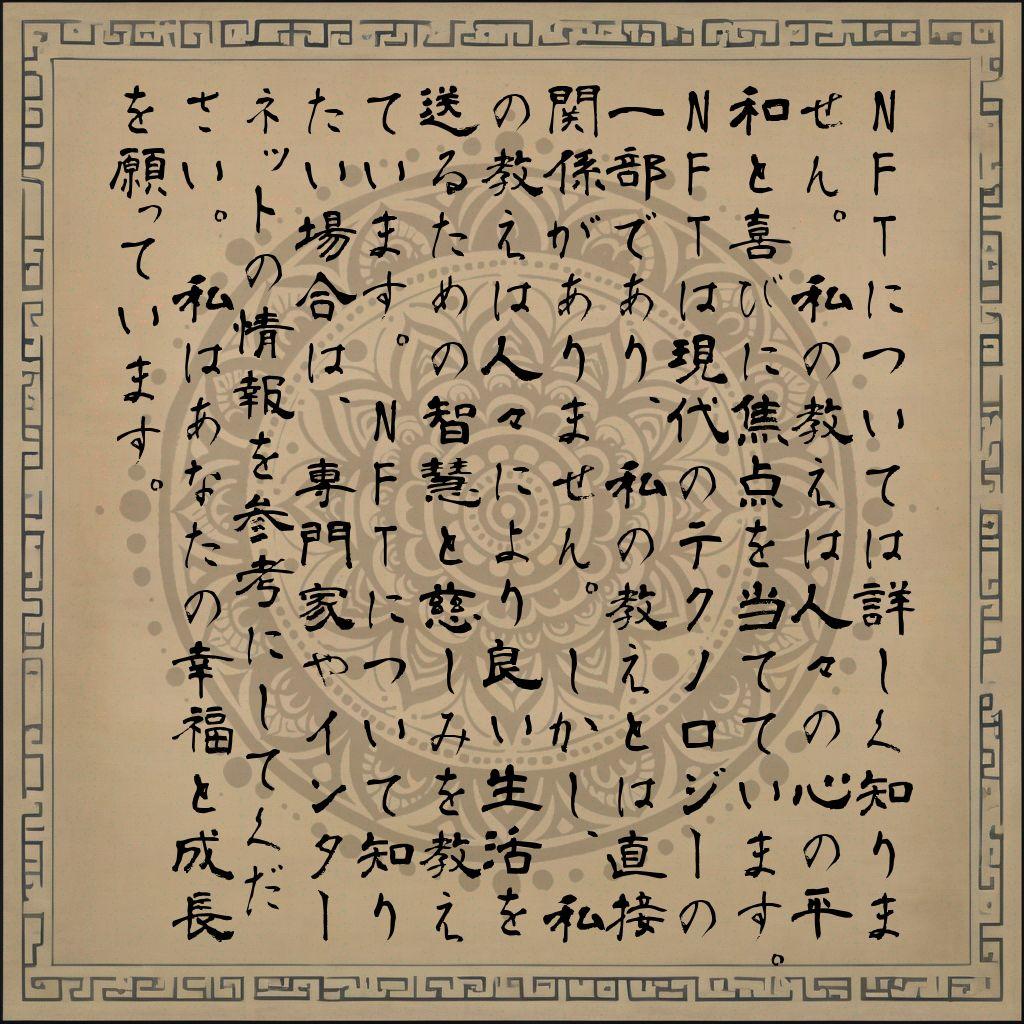 NFTについては詳しく知りま
せん。私の教えは人々の心の平
和と喜びに焦点を当てています。
NFTは現代のテクノロジーの
一部であり、私の教えとは直接
関係がありません。しかし、私
の教えは人々により良い生活を
送るための智慧と慈しみを教え
ています。NFTについて知り
たい場合は、専門家やインター
ネットの情報を参考にしてくだ
さい。私はあなたの幸福と成長
を願っています。